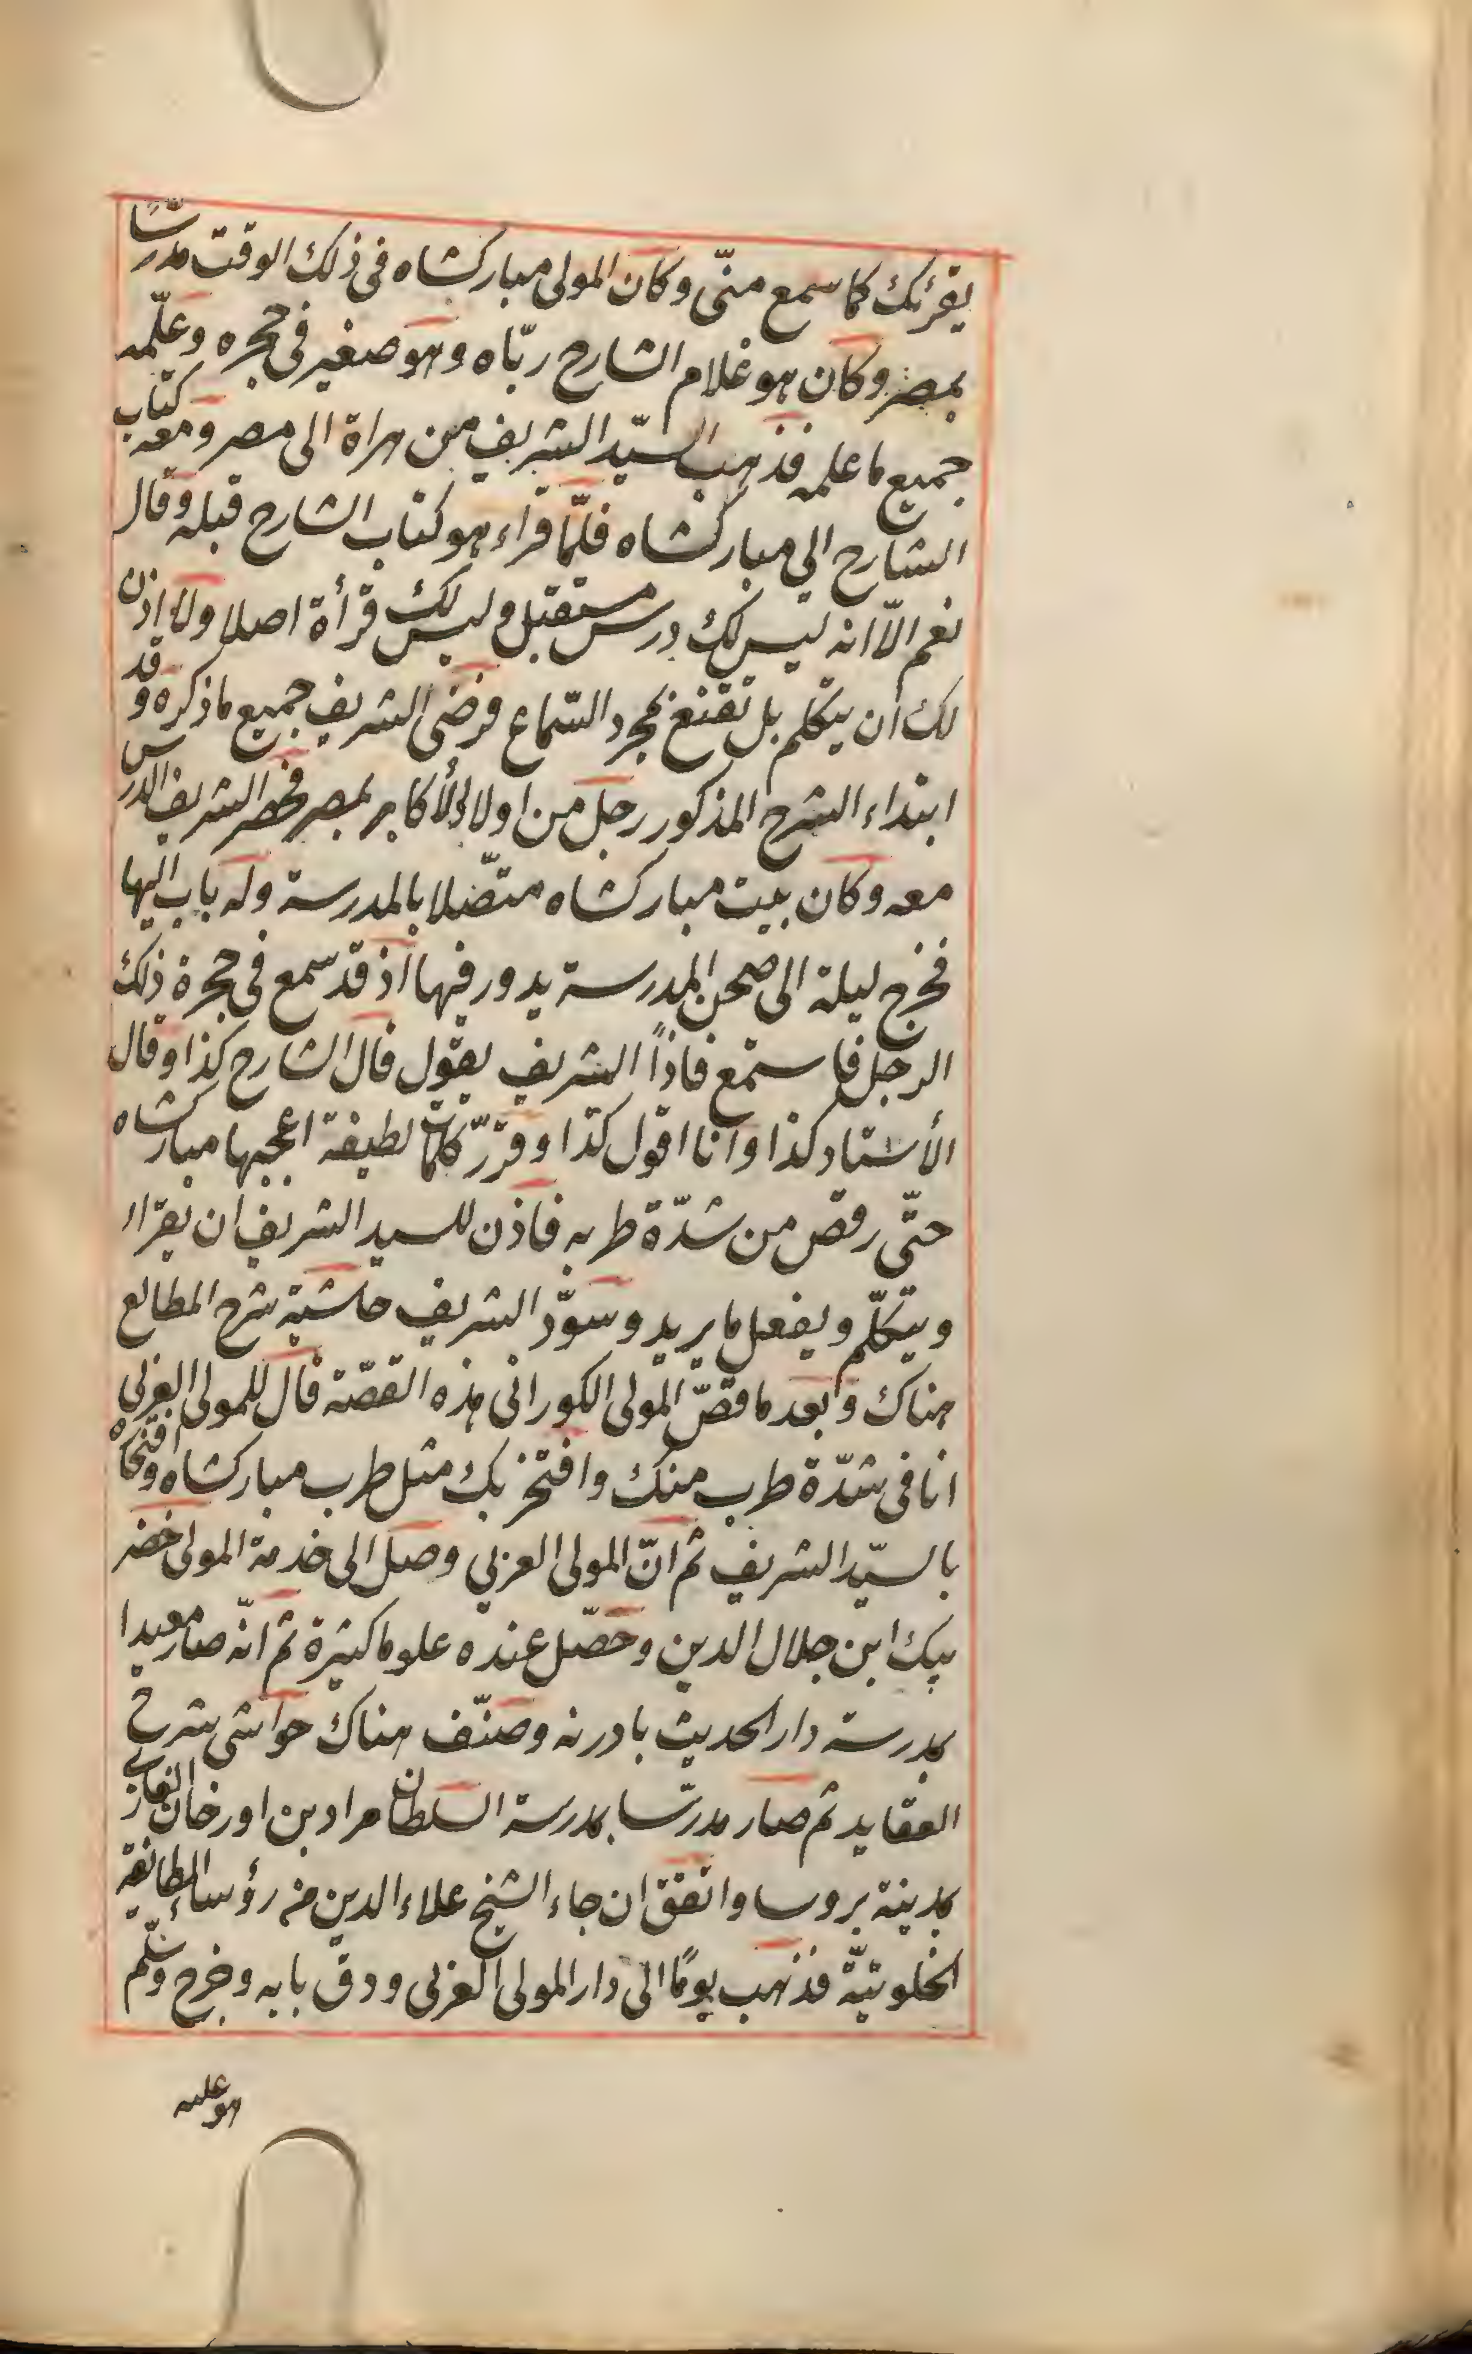 يقرئك كما سمع منّى وكان المولى مباركشاه فى ذلك الوقت مدرّسًا
بمصر وكان هو غلام الشارح ربّاه وهو صغير فى حجره وعلّمه
جميع ما علمه فذهب السيّد الشريف من هراة الى مصر ومعه كتاب
الشارح الى مباركشاه فلمّا قراء هو كتاب الشارح قبله وقال
نعم الّا انه ليس لك درس مستقبل وليس لك قرأة اصلا ولا اذن
لك ان يتكلم بل تقنع بمجرد السّماع فرضى الشريف جميع ما ذكره وقد
ابتداء الشرح المذكور رجل من اولاد الأكابر بمصر فحضر الشريف الدرس
معه وكان بيت مباركشاه متصّلا بالمدرسة وله باب اليها
فخرج ليلة الى صحن المدرسة يدور فيها اذ قد سمع فى حجرة ذلك
الرجل فاستمع فاذاً الشريف يقول قال الشارح كذا وقال
الأستاد كذا وانا اقول كذا وقرّر كلمات لطيفة اعجبها مباركشاه
حتّى رقص من شدّة طربه فاذن للسيد الشريف ان يقراء
ويتكلّم ويفعل ما يريد وسوّد الشريف حاشية شرح المطالع
هناك وابعد ما قصّ المولى الكورانى هذه القصّة قال للمولى العربى
انا فى شدّة طرب منك وافتخر بك مثل طرب مباركشاه وافتخاره
بالسيّد الشريف ثم انّ المولى العربي وصل الى خدمة المولى خضر
بيك ابن جلال الدين وحصّل عنده علوما كثيرة ثم انّه صار معيدا
بمدرسة دار الحديث بادرنه وصنّف هناك حواشى شرح
العقايد ثم صار مدرّسا بمدرسة السلطان مراد بن اورخان الغازى
بمدينة بروسا واتفق ان جاء الشيخ علاء الدين من رؤساء الطائفة
الخلوتيّة فذهب يومًا الى دار المولى العربى ودقّ بابه وخرج وسلّم
هو عليه